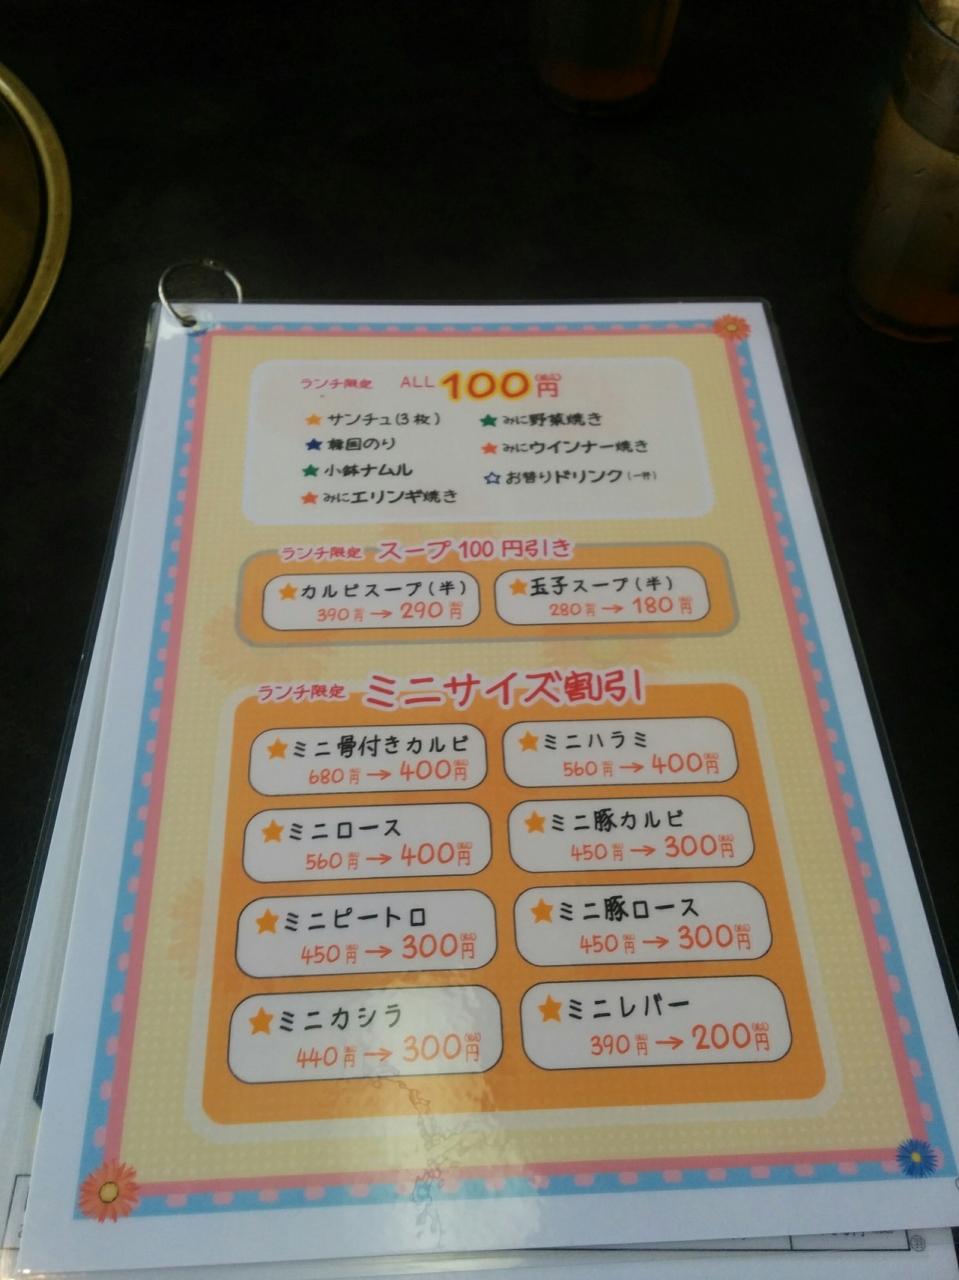 ランチ限定 ALL 100円(税込)
サンチュ(3枚)
韓国のり
小鉢ナムル
みにエリンギ焼き
みに野菜焼き
みにウインナー焼き
お替りドリンク(一杯)
ランチ限定 スープ100円引き
カルビスープ(半)
390円→290円
玉子スープ(半)
280円→180円
ランチ限定 ミニサイズ割引
ミニ骨付きカルビ
680円→400円
ミニハラミ
560円→400円
ミニロース
560円→400円
ミニ豚カルビ
450円→300円
ミニピートロ
450円→300円
ミニ豚ロース
450円→300円
ミニカシラ
440円→300円
ミニレバー
390円→200円